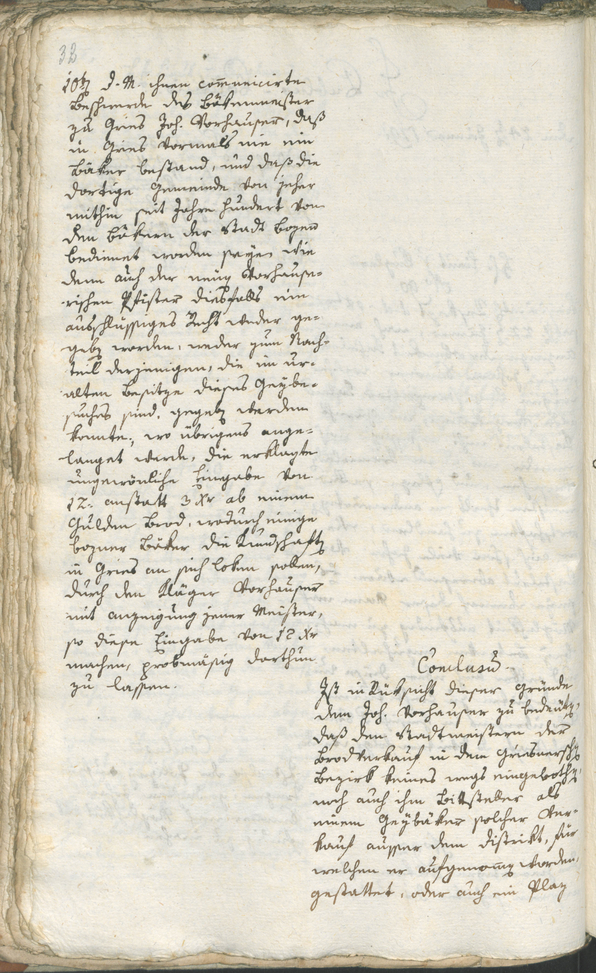 32
10t d. M. ihnen communicirte
Beschwerde des Bäkenmeister
zu Gries Joh. Vorhauser, daß
in Gries vormals nie ein
Bäker bestand, und daß die
dortige Gemeinde von jeher
mithin seit Jahrhundert von
den Bäkern der Stadt Bozen
bedienet worden seyen, wie
denn auch der neuen Vorhause-
rischen Pfister diesfalls ein
ausschlüssiges Recht weder ge-
geben worden, weder zum Nach-
teil derjenigen, die im ur-
alten Besitze dieses Geybe-
suches sind, gegeben werden
konnte, wo übrigens ange-
langet werde, die erklagte
ungewönliche Eingabe von
12. anstatt 3 Xr ab einem
Gulden Brod, wodurch einige
bozner Bäker die Kundschaften
in Gries an sich loken sollen,
durch den Kläger Vorhauser
mit anzeigung jener Meister,
so diese Eingabe von 12 Xr
machen, probmäsig darthun
zu lassen.
Conclusum
Ist in Rüksicht dieser Gründe
dem Joh. Vorhauser zu bedeuten,
daß den Stadtmeistern der
Brodverkauf in dem Griesnerschen
Bezirk keines wegs eingebothen,
noch auch ihm Bittsteller als
einem Geybäker solcher Ver-
kauf ausser dem District, für
welchen er aufgenommen worden,
gestattet, oder auch ein Plaz